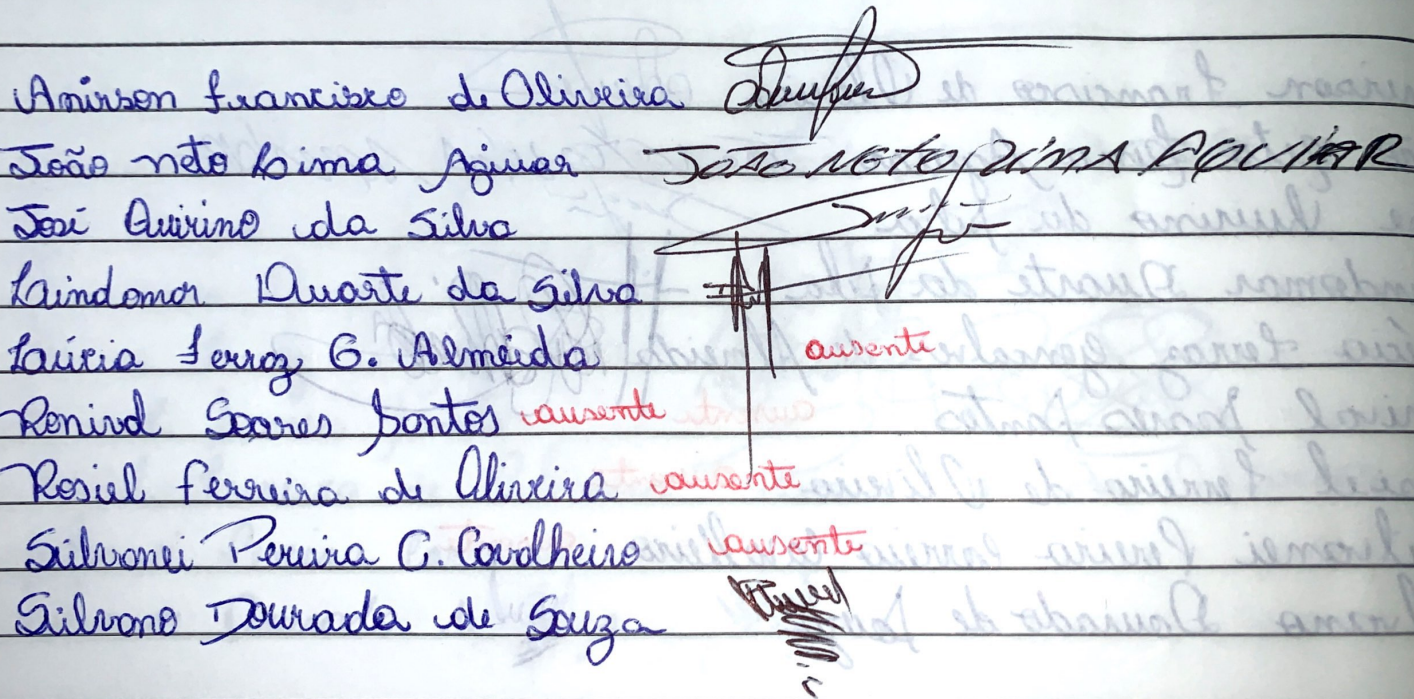 Anirson Francisco de Oliveira
João neto Lima Aguiar JOÃO NETO LIMA AGUIAR
José Quirino da Silva
Laindomar Duarte da Silva
Laúcia Ferraz G. Almeida ausente
Renival Soares Santos ausente
Rosiel Ferreira de Oliveira ausente
Silvonei Pereira C. Cavalheiro ausente
Silvano Dourado de Souza